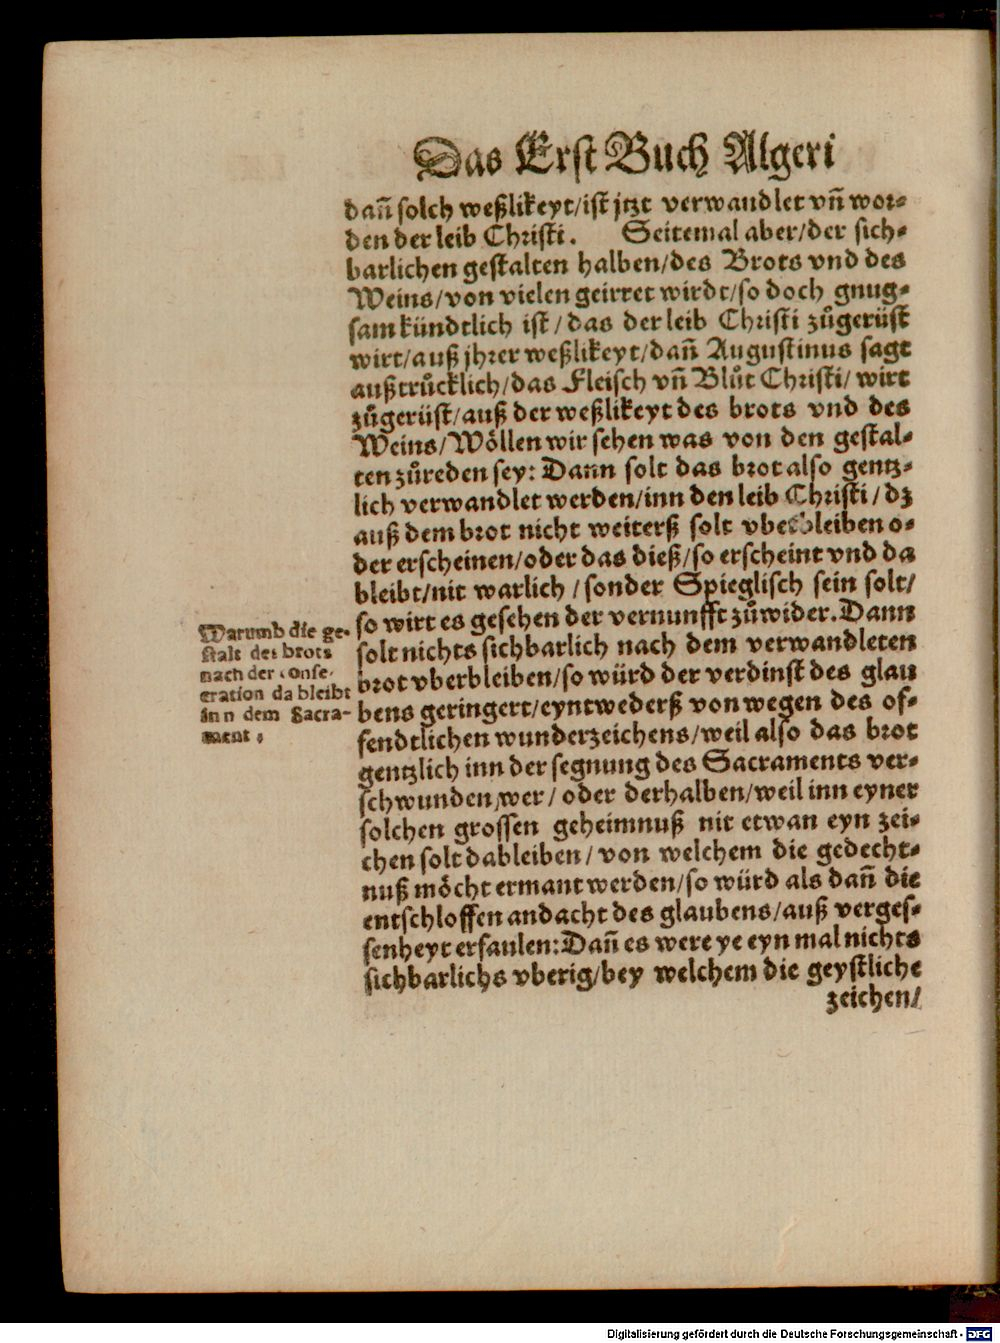 Das Erst Buch Algeri
dañ solch weßlikeyt/ist jtzt verwandlet vñ wor-
den der leib Christi. Seitemal aber/der sich-
barlichen gestalten halben/des Brots vnd des
Weins/von vielen geirret wirdt/so doch gnug-
sam kündtlich ist/das der leib Christi zůgerüst
wirt/auß jhrer weßlikeyt/dañ Augustinus sagt
außtrůcklich/das Fleisch vñ Blůt Christi/wirt
zůgerüst/auß der weßlikeyt des brots vnd des
Weins/Wöllen wir sehen was von den gestal-
ten zůreden sey: Dann solt das brot also gentz-
lich verwandlet werden/inn den leib Christi/dz
auß dem brot nicht weiterß solt vberbleiben o-
der erscheinen/oder das dieß/so erscheint vnd da
bleibt/nit warlich/sonder Spieglisch sein solt/
so wirt es gesehen der vernunfft zůwider. Dann
solt nichts sichbarlich nach dem verwandleten
brot vberbleiben/so würd der verdinst des glau
bens geringert/eyntwederß von wegen des of-
fendtlichen wunderzeichens/weil also das brot
gentzlich inn der segnung des Sacraments ver-
schwunden wer/oder derhalben/weil inn eyner
solchen grossen geheimnuß nit etwan eyn zei-
chen solt dableiben/von welchem die gedecht-
nuß möcht ermant werden/so würd als dañ die
entschloffen andacht des glaubens/auß verges-
senheyt erfaulen: Dañ es were ye eyn mal nichts
sichbarlichs vberig/bey welchem die geystliche
zeichen/
Warumb die ge-
stalt des brots
nach der conse-
cration da bleibt
inn dem Sacra-
ment.
Digitalisierung gefördert durch die Deutsche Forschungsgemeinschaft - DFG